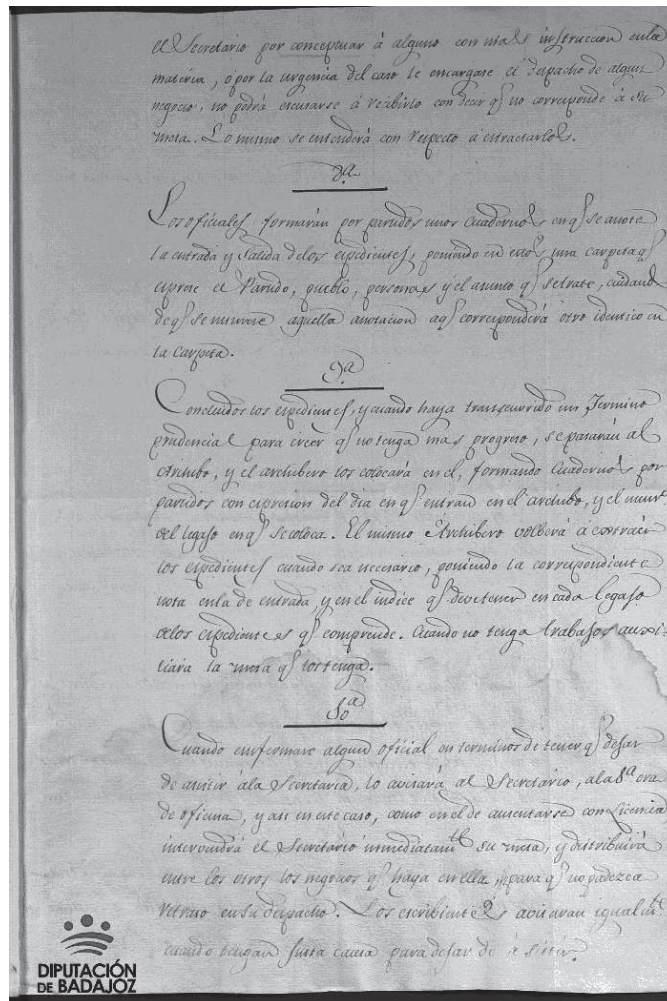 el Secretario por conceptuar á alguno con mas instruccion enla
materia, ó por la urgencia del caso le encargase el despacho de algun
negocio, no podrá escusarse á recibirlo con decir q.e no corresponde á su
mesa. Lo mismo se entenderá con respecto á estractarlos.
8ª
Los oficiales formarán por partidos unos Cuadernos en q.e se anote
la entrada y salida delos espedientes, poniendo en estos una carpeta q.e
esprese el Partido, pueblo, personas y el asunto q.e setrate, cuidando
de q.e se numere aquella anotacion a q.e corresponderá otro identico en
la Carpeta.
9ª
Concluidos los espedientes, y cuando haya transcurrido un Termino
prudencial para creer q.e no tenga mas progreso, se pasarán al
Archibo, y el archibero los colocará en el, formando Cuadernos por
partidos con espresion del dia en q.e entran en el archibo, y el num.o
del legajo en q.e se coloca. El mismo Archibero volberá á estraer
los espedientes cuando sea necesario, poniendo la correspondiente
nota enla de entrada, y en el indice q.e deve tener en cada legajo
delos espedientes q.e comprende. Cuando no tenga trabajos auxi-
liará la mesa q.e los tenga.
10ª
Cuando enfermare algun oficial en terminos de tener q.e dejar
de asistir ála Secretaria, lo avisará al Secretario, ala 1ª ora
de oficina, y asi en este caso, como en el de ausentarse con Licencia
intervendrá el Secretario inmediatam.te su mesa, y distribuirá
entre los otros los negocios q.e haya en ella, para q.e no padezca
retraso en su despacho. Los escribientes avisaran igualm.te
cuando tengan justa causa para dejar de asistir.
DIPUTACIÓN
DE BADAJOZ